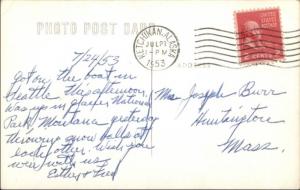 PHOTO POST CARD
KETCHIKAN, ALASKA
JUL
1953
-PM
ADDRESS
2 CENTS 2
7/24/53
Got on the boat in
Seattle this afternoon,
was up in Glacier National
Park, Montana yesterday
throwing snow balls at
each other. Wish you
were with us
& Fred
Mr. Joseph Burr
Huntington
Mass.